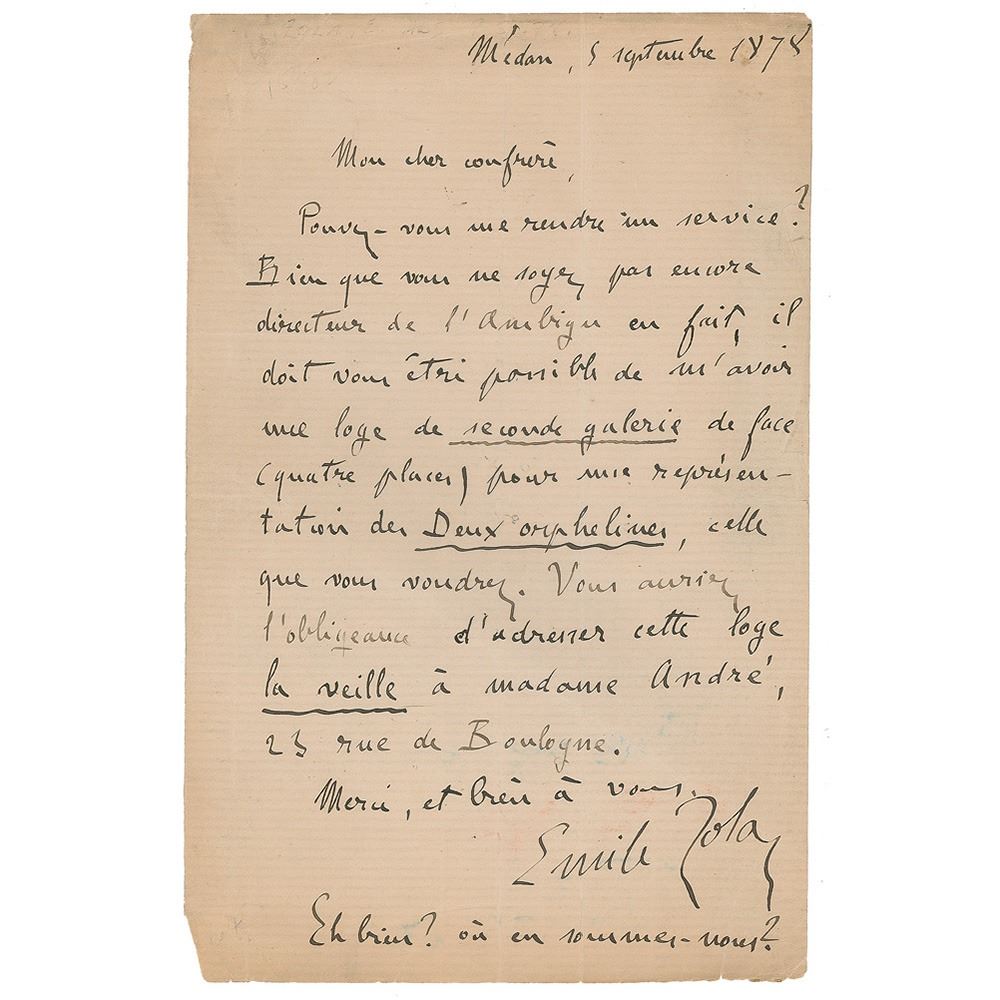 Médan, 5 septembre 1878
Mon cher confrère,
Pouvez-vous me rendre un service?
Bien que vous ne soyez pas encore
directeur de l'Ambigu en fait, il
doit vous être possible de m'avoir
une loge de seconde galerie de face
(quatre places) pour une représen-
tation des Deux orphelines, celle
que vous voudrez. Vous auriez
l'obligeance d'adresser cette loge
la veille à madame André,
23 rue de Boulogne.
Merci, et bien à vous.
Emile Zola
Eh bien? où en sommes-nous?